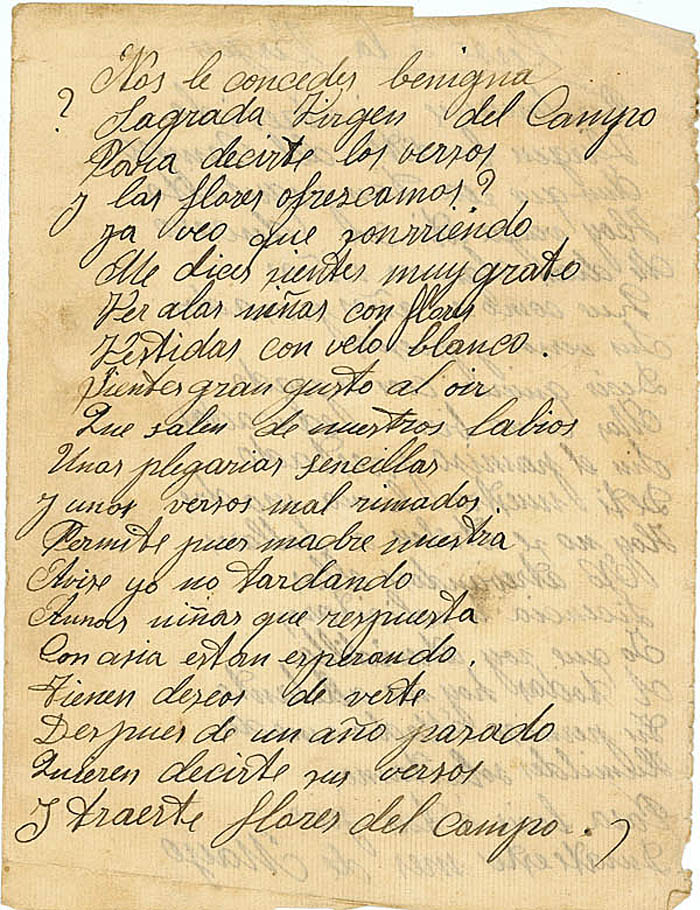 Nos le concedes benigna
? Sagrada Virgen del Campo
Para decirte los versos
y las flores ofrescamos?
ya veo que sonrriendo
Me dices sientes muy grato
Ver alas niñas con flores
Vestidas con velo blanco.
Sientes gran gusto al oir
Que salen de nuestros labios
Unas plegarias sencillas
y unos versos mal rimados
Permite pues madre nuestra
Avise yo no tardando
Aunas niñas que respuesta
Con asia estan esperando.
Tienen deseos de verte
Despues de un año pasado
Quieren decirte sus versos
y traerte flores del campo.